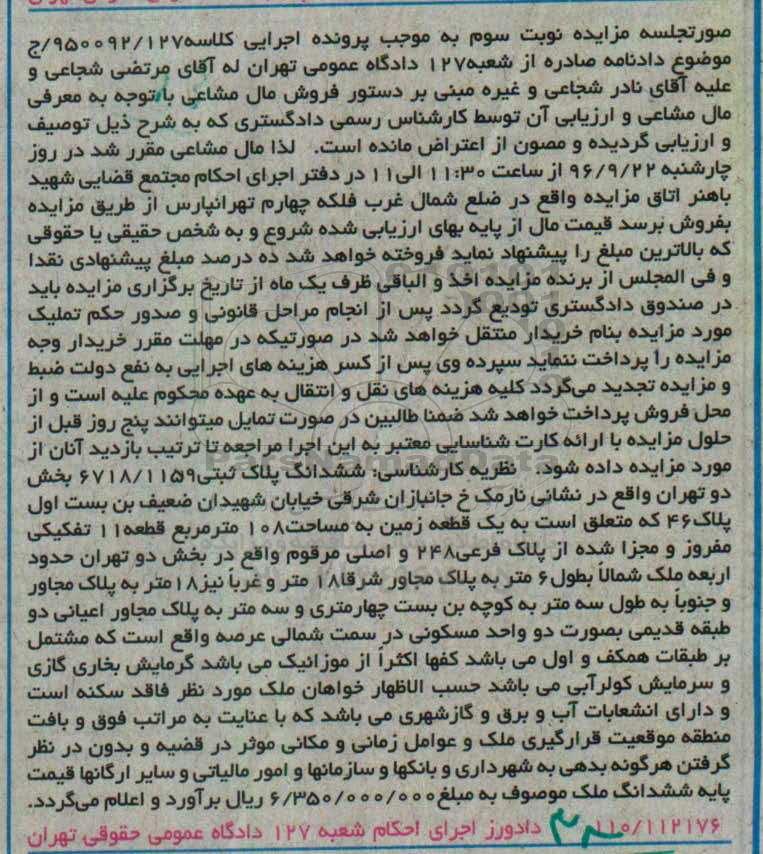 صورتجلسه مزایده نوبت سوم به موجب پرونده اجرایی کلاسه۹۵۰۰۹۲/۱۲۷/ج
موضوع دادنامه صادره از شعبه۱۲۷ دادگاه عمومی تهران له آقای مرتضی شجاعی و
علیه آقای نادر شجاعی و غیره مبنی بر دستور فروش مال مشاعی با توجه به معرفی
مال مشاعی و ارزیابی آن توسط کارشناس رسمی دادگستری که به شرح ذیل توصیف
و ارزیابی گردیده و مصون از اعتراض مانده است. لذا مال مشاعی مقرر شد در روز
چارشنبه ۹۶/۹/۲۲ از ساعت ۱۱:۳۰ الی۱۱ در دفتر اجرای احکام مجتمع قضایی شهید
باهنر اتاق مزایده واقع در ضلع شمال غرب فلکه چهارم تهرانپارس از طریق مزایده
بفروش برسد قیمت مال از پایه بهای ارزیابی شده شروع و به شخص حقیقی یا حقوقی
که بالاترین مبلغ را پیشنهاد نماید فروخته خواهد شد ده درصد مبلغ پیشنهادی نقدا
و فی المجلس از برنده مزایده اخذ و الباقی ظرف یک ماه از تاریخ برگزاری مزایده باید
در صندوق دادگستری تودیع گردد پس از انجام مراحل قانونی و صدور حکم تملیک
مورد مزایده بنام خریدار منتقل خواهد شد در صورتیکه در مهلت مقرر خریدار وجه
مزایده را پرداخت ننماید سپرده وی پس از کسر هزینه های اجرایی به نفع دولت ضبط
و مزایده تجدید می‌گردد کلیه هزینه های نقل و انتقال به عهده محکوم علیه است و از
محل فروش پرداخت خواهد شد ضمنا طالبین در صورت تمایل میتوانند پنج روز قبل از
حلول مزایده با ارائه کارت شناسایی معتبر به این اجرا مراجعه تا ترتیب بازدید آنان از
مورد مزایده داده شود. نظریه کارشناسی: ششدانگ پلاک ثبتی۶۷۱۸/۱۱۵۹ بخش
دو تهران واقع در نشانی نارمک خ جانبازان شرقی خیابان شهیدان ضعیف بن بست اول
پلاک۴۶ که متعلق است به یک قطعه زمین به مساحت۱۰۸ مترمربع قطعه۱۱ تفکیکی
مفروز و مجزا شده از پلاک فرعی۲۴۸ و اصلی مرقوم واقع در بخش دو تهران حدود
اربعه ملک شمالاً بطول۶ متر به پلاک مجاور شرقا۱۸ متر و غرباً نیز۱۸متر به پلاک مجاور
و جنوباً به طول سه متر به کوچه بن بست چهارمتری و سه متر به پلاک مجاور اعیانی دو
طبقه قدیمی بصورت دو واحد مسکونی در سمت شمالی عرصه واقع است که مشتمل
بر طبقات همکف و اول می باشد کفها اکثراً از موزائیک می باشد گرمایش بخاری گازی
و سرمایش کولرآبی می باشد حسب الاظهار خواهان ملک مورد نظر فاقد سکنه است
و دارای انشعابات آب و برق و گازشهری می باشد که با عنایت به مراتب فوق و بافت
منطقه موقعیت قرارگیری ملک و عوامل زمانی و مکانی موثر در قضیه و بدون در نظر
گرفتن هرگونه بدهی به شهرداری و بانکها و سازمانها و امور مالیاتی و سایر ارگانها قیمت
پایه ششدانگ ملک موصوف به مبلغ۶/۳۵۰/۰۰۰/۰۰۰ ریال برآورد و اعلام می‌گردد.
۱۱۰/۱۱۲۱۷۶ دادورز اجرای احکام شعبه ۱۲۷ دادگاه عمومی حقوقی تهران